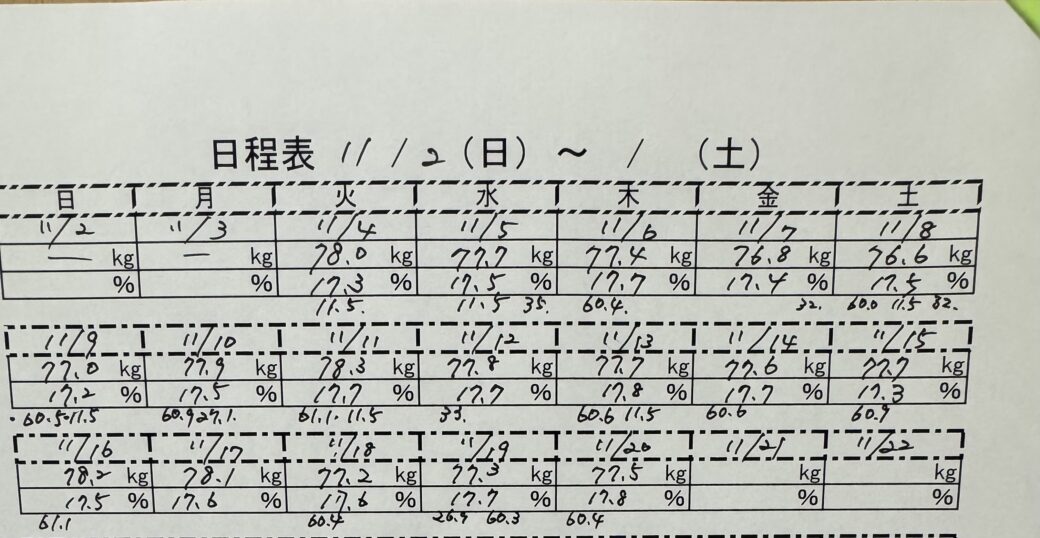 日程表 11/2(日) ~ / (土)
日 月 火 水 木 金 土
11/2 11/3 11/4 11/5 11/6 11/7 11/8
— kg — kg 78.0 kg 77.7 kg 77.4 kg 76.8 kg 76.6 kg
% % 17.3 % 17.5 % 17.7 % 17.4 % 17.5 %
11.5. 11.5 35. 60.4. 32. 60.0 11.5 32.
11/9 11/10 11/11 11/12 11/13 11/14 11/15
77.0 kg 77.9 kg 78.3 kg 77.8 kg 77.7 kg 77.6 kg 77.7 kg
17.2 % 17.5 % 17.7 % 17.7 % 17.8 % 17.7 % 17.3 %
60.5.11.5 60.9 27.1. 61.1. 11.5 33. 60.6 11.5 60.6 60.9
11/16 11/17 11/18 11/19 11/20 11/21 11/22
78.2 kg 78.1 kg 77.2 kg 77.3 kg 77.5 kg kg kg
17.5 % 17.6 % 17.6 % 17.7 % 17.8 % % %
61.1 60.4 26.9 60.3 60.4